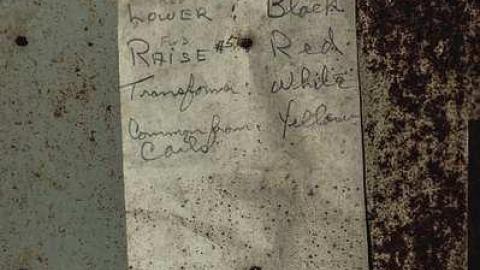 LOWER : Black
RAISE #5 Red
Transforma : White
Common from : Yellow
Coils